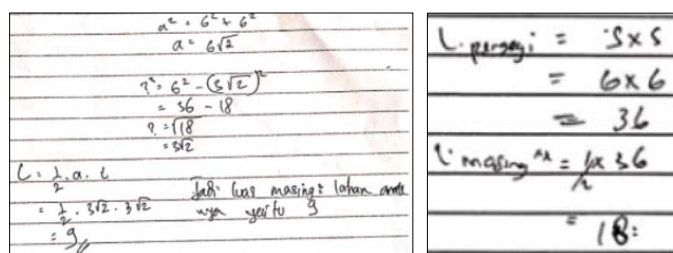 a² = 6² + 6²
a = 6√2
?² = 6² - (3√2)²
= 36 - 18
? = √18
= 3√2
L = 1/2 . a . t
= 1/2 . 3√2 . 3√2
= 9
Jadi luas masing² lahan
nya yaitu 9
L. persegi = s x s
= 6 x 6
= 36
L. masing = 1/2 x 36
= 18